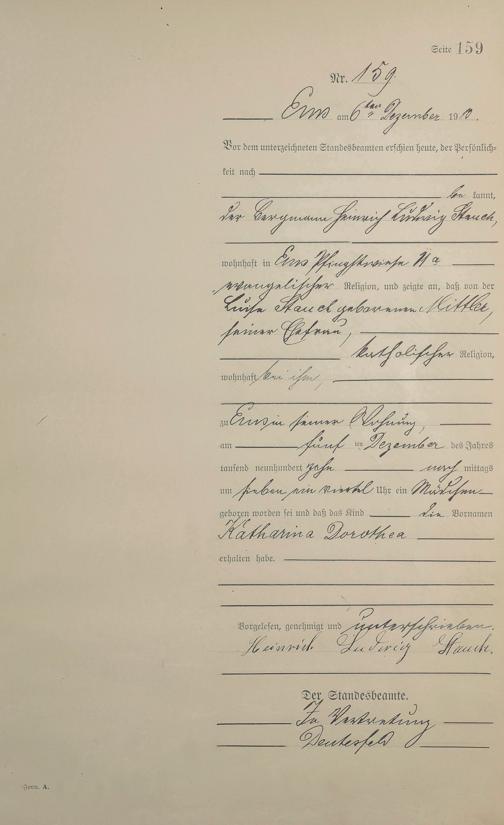 Seite 159
Nr. 159.
Ems am 6ten Dezember 1910.
Vor dem unterzeichneten Standesbeamten erschien heute, der Persönlich-
keit nach
be kannt,
der Bergmann Heinrich Ludwig Stauch,
wohnhaft in Ems Pfingstwiese 11a
evangelischer Religion, und zeigte an, daß von der
Luise Stauch geborenen Mittler,
seiner Ehefrau,
katholischer Religion,
wohnhaft bei ihm,
zu Ems in seiner Wohnung,
am fünf ten Dezember des Jahres
tausend neunhundert zehn nach mittags
um sieben ein viertel Uhr ein Mädchen
geboren worden sei und daß das Kind die Vornamen
Katharina Dorothea
erhalten habe.
Vorgelesen, genehmigt und unterschrieben.
Heinrich Ludwig Stauch.
Der Standesbeamte.
In Vertretung
Form. A.